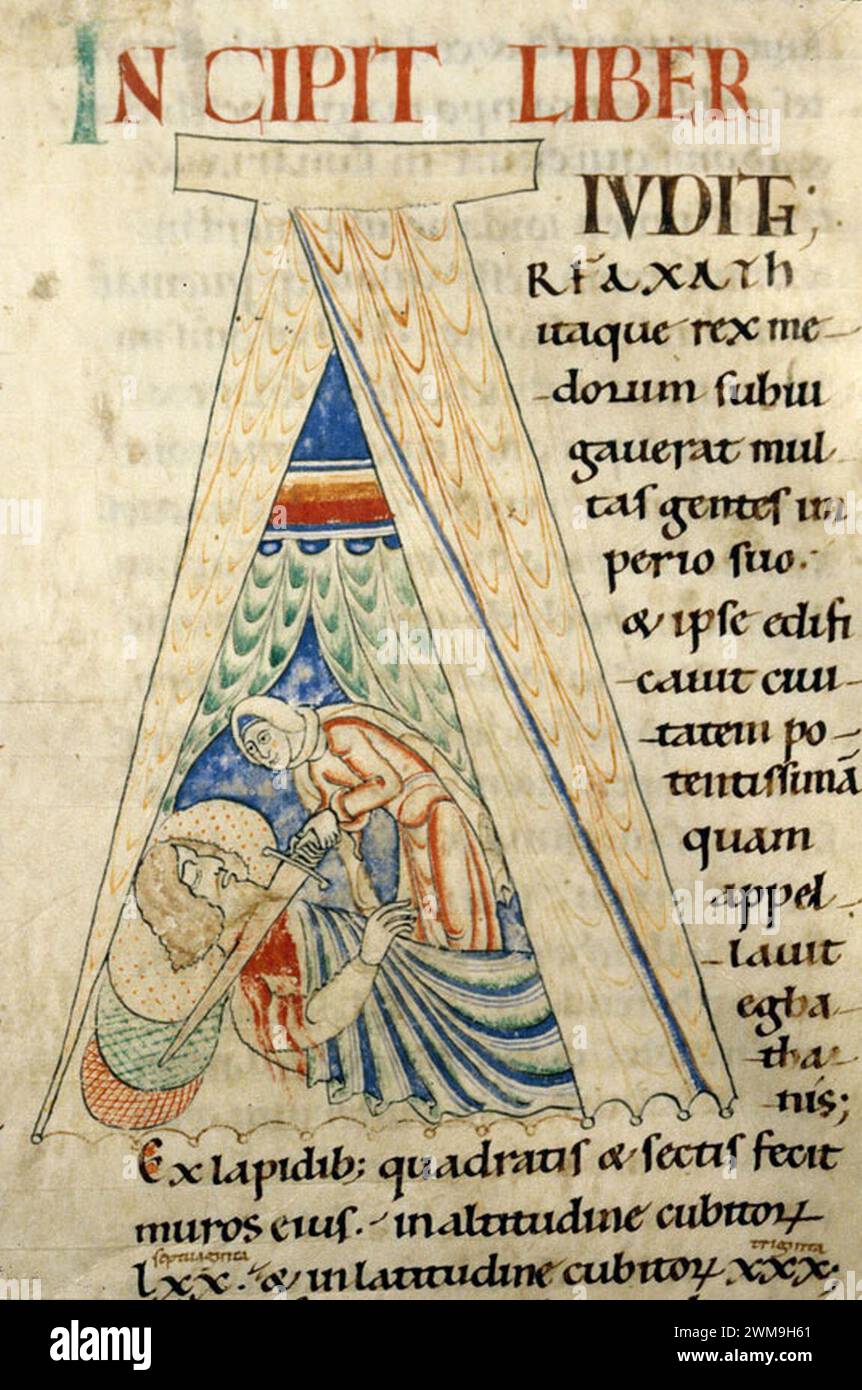 INCIPIT LIBER
IVDITH;
A RFAXATH
itaque rex me-
dorum subiu
gauerat mul-
tas gentes im
perio suo.
& ipse edifi
cauit ciui-
tatem po-
tentissimā
quam
appel-
lauit
egba-
tha-
nis;
Ex lapidib; quadratis & sectis fecit
muros eius. in altitudine cubitoꝝ
septuaginta triginta
lxx. & in latitudine cubitoꝝ xxx;
alamy
Image ID: 2WM9H61
www.alamy.com